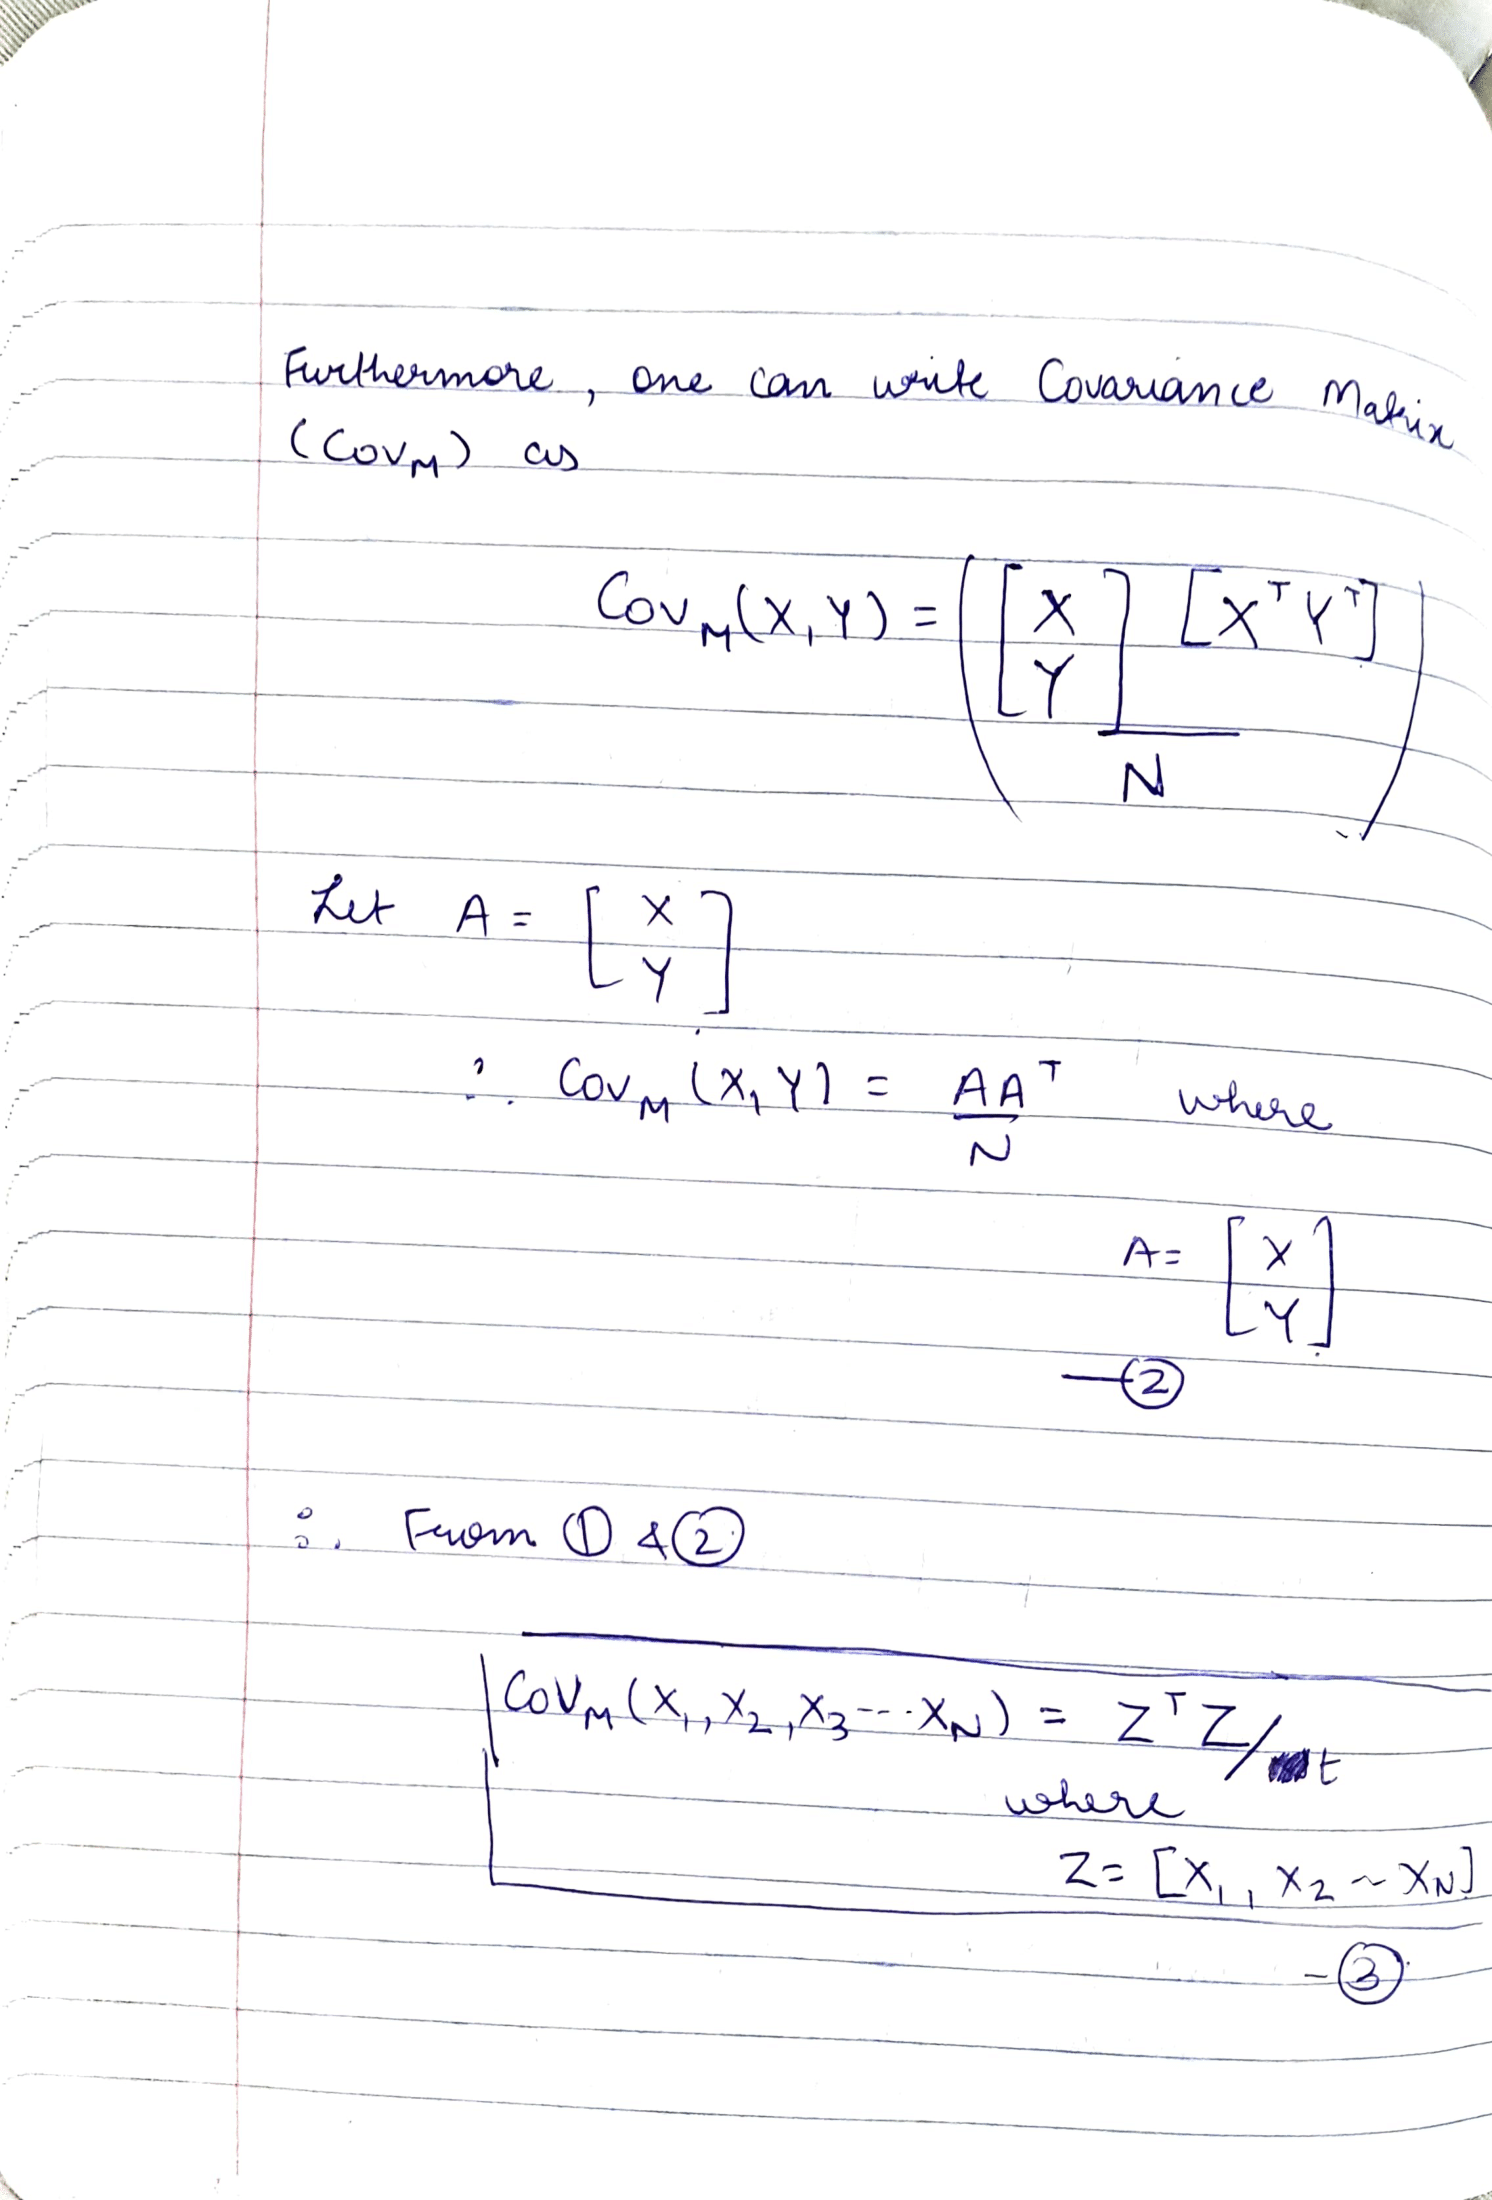 Furthermore, one can write Covariance Matrix
(CovM) as
CovM(X,Y) = ([X Y] [Xᵀ Yᵀ] / N)
Let A = [X Y]
∴ CovM(X,Y) = AAᵀ / N where
A = [X Y]
—②
∴ From ① & ②
CovM(X₁, X₂, X₃ --- XN) = ZᵀZ/t
where
Z = [X₁, X₂ ~ XN]
-③